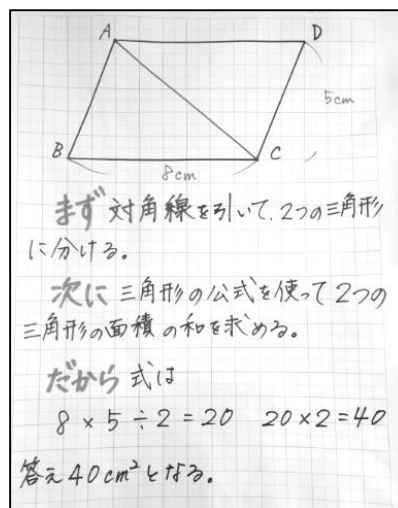 A
D
5cm
B
8cm
C
まず 対角線を引いて、2つの三角形
に分ける。
次に 三角形の公式を使って2つの
三角形の面積の和を求める。
だから 式は
8 × 5 ÷ 2 = 20 20 × 2 = 40
答え 40cm²となる。